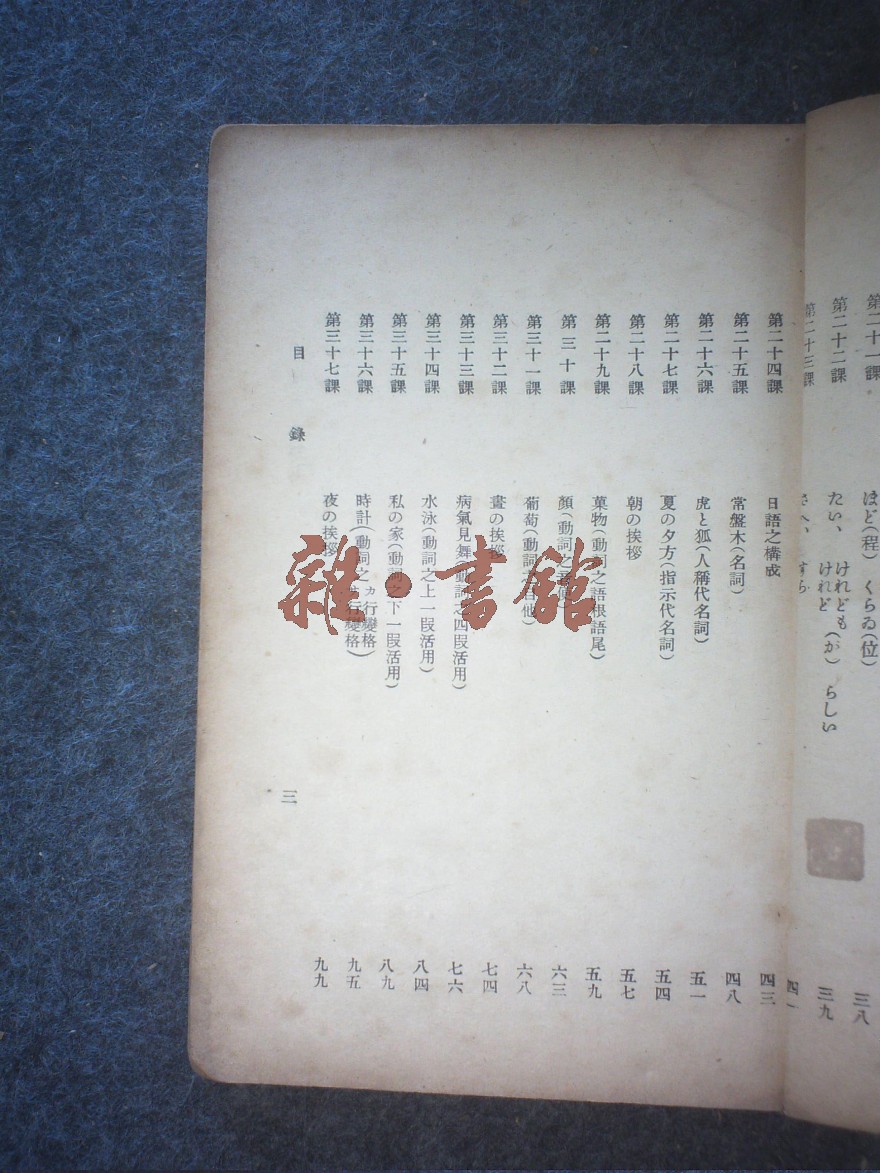 第二十一課 ほど(程) くらゐ(位) 三八
第二十二課 たい、 けれども けれど (が) らしい 三九
第二十三課 さへ、 すら 四一
第二十四課 日語之構成 四三
第二十五課 常盤木(名詞) 四八
第二十六課 虎と狐(人稱代名詞) 五一
第二十七課 夏の夕方(指示代名詞) 五四
第二十八課 朝の挨拶 五七
第二十九課 菓物(動詞之語根語尾) 五九
第三十課 顏(動詞之 六三
第三十一課 葡萄(動詞 他) 六八
第三十二課 晝の挨拶 七四
第三十三課 病氣見舞(動詞之四段活用) 七六
第三十四課 水泳(動詞之上一段活用) 八四
第三十五課 私の家(動詞之下一段活用) 八九
第三十六課 時計(動詞之 カ行變格 行變格) 九五
第三十七課 夜の挨拶 九九
目錄 三
雜·書館